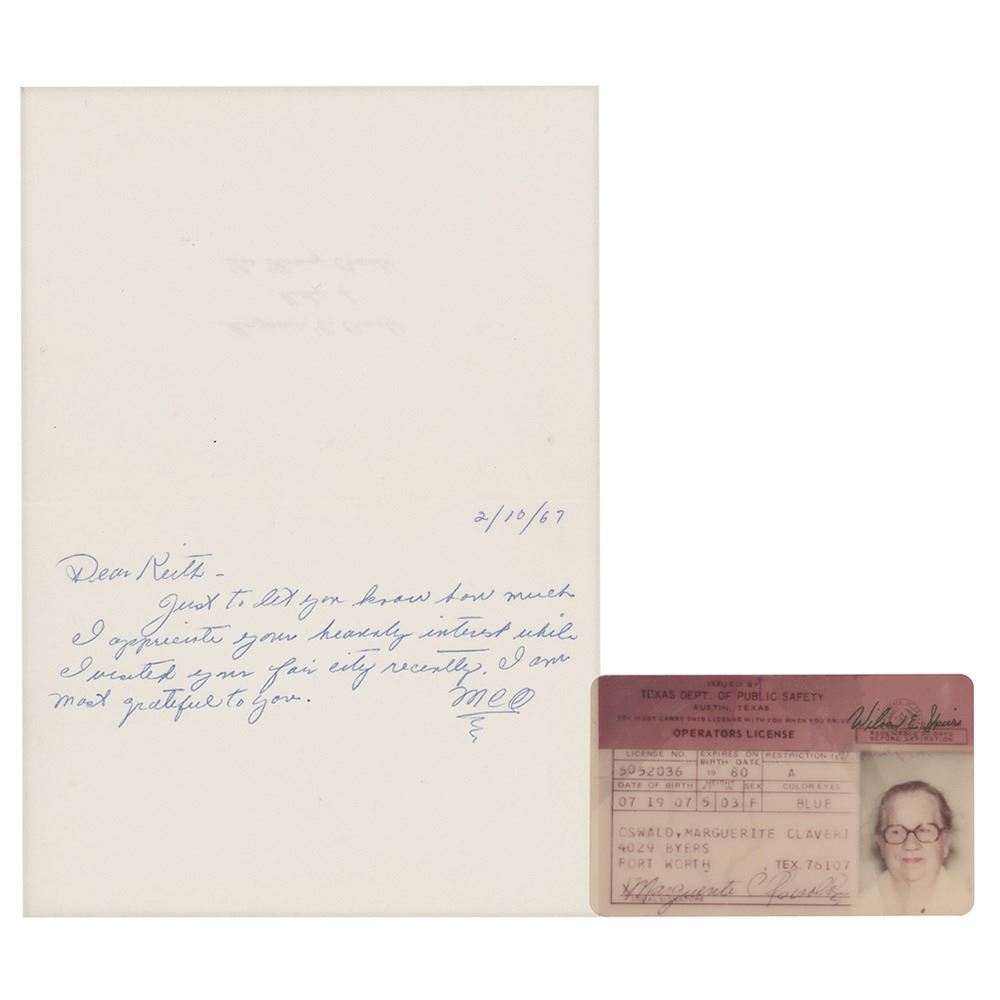 2/10/67
Dear Keith -
Just to let you know how much
I appriciate your heavnly interest while
I visited your fair city recently. I am
most grateful to you. MCO
ISSUED BY
TEXAS DEPT. OF PUBLIC SAFETY
AUSTIN, TEXAS
YOU MUST CARRY THIS LICENSE WITH YOU WHEN YOU DRIVE
OPERATORS LICENSE
Wilson E. Speir
LICENSE NO. EXPIRES ON BIRTH DATE RESTRICTION
5052036 19 80 A
DATE OF BIRTH HEIGHT FT IN SEX COLOR EYES
07 19 07 5 03 F BLUE
OSWALD, MARGUERITE CLAVERI
4029 BYERS
FORT WORTH TEX. 76107
X Marguerite C. Oswald
USUAL SIGNATURE